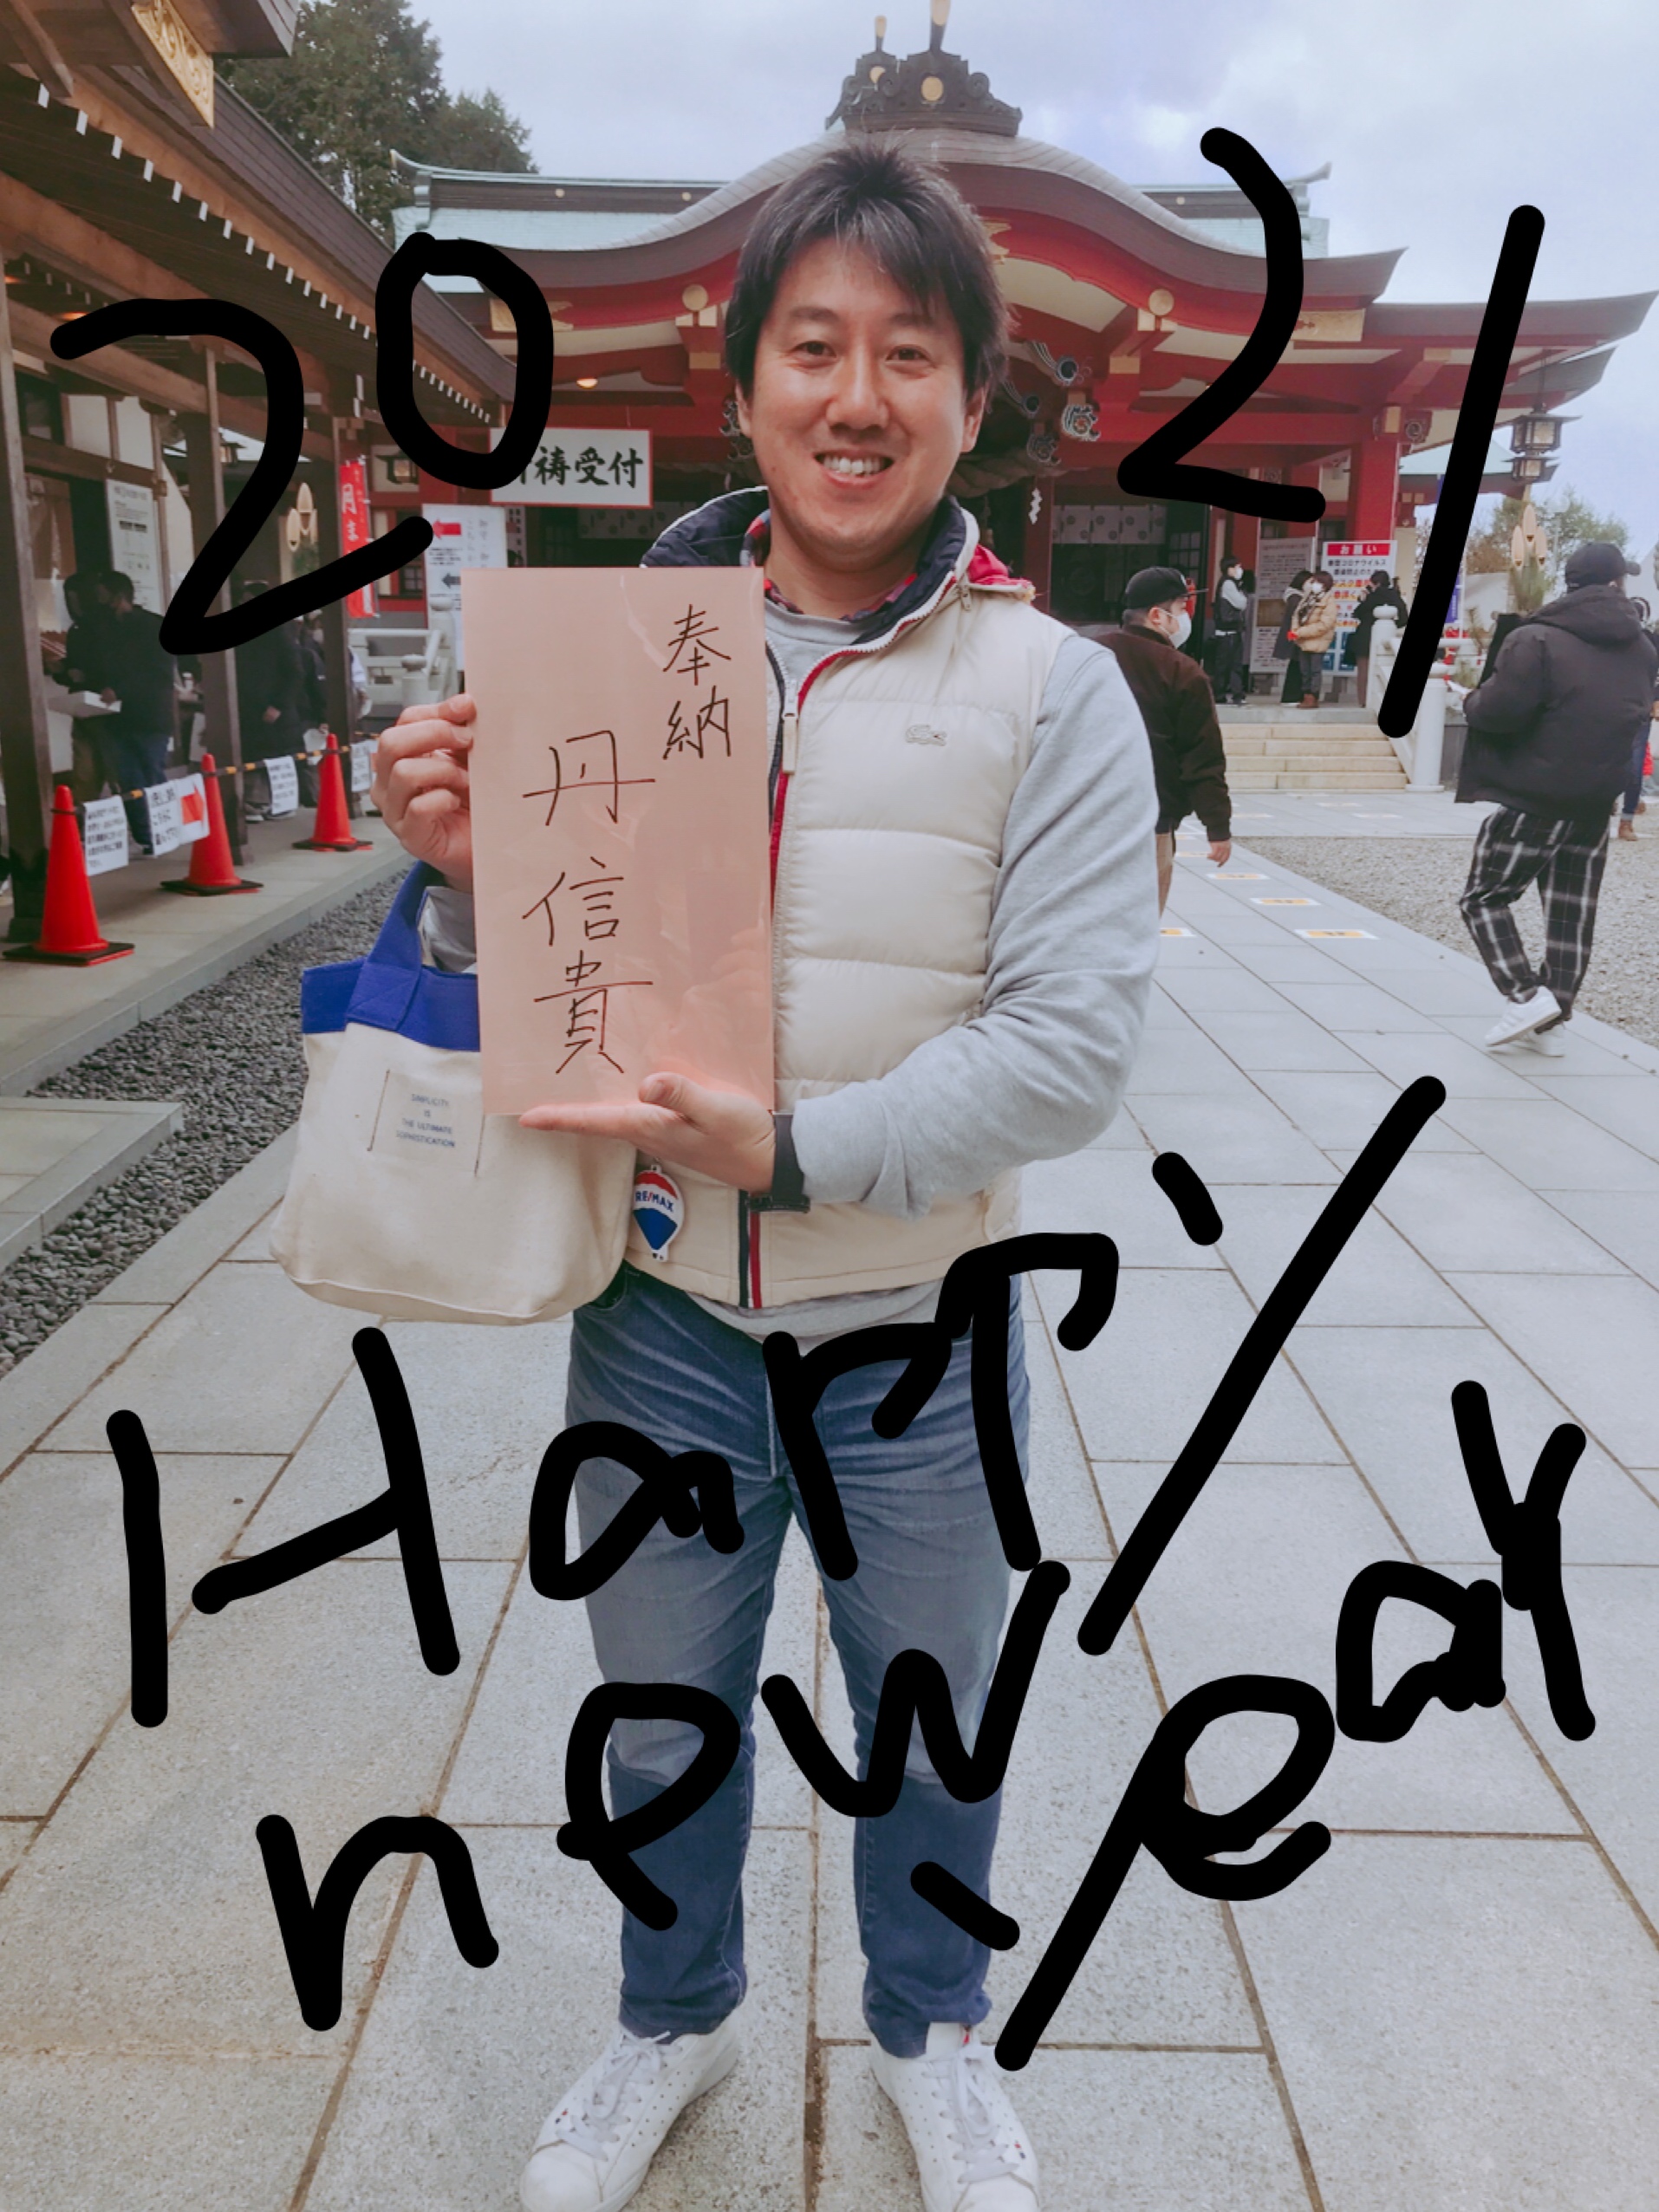 2021
祷受付
奉納
丹信貴
お願い
SIMPLICITY
IS
THE ULTIMATE
SOPHISTICATION
RE/MAX
Happy
new year